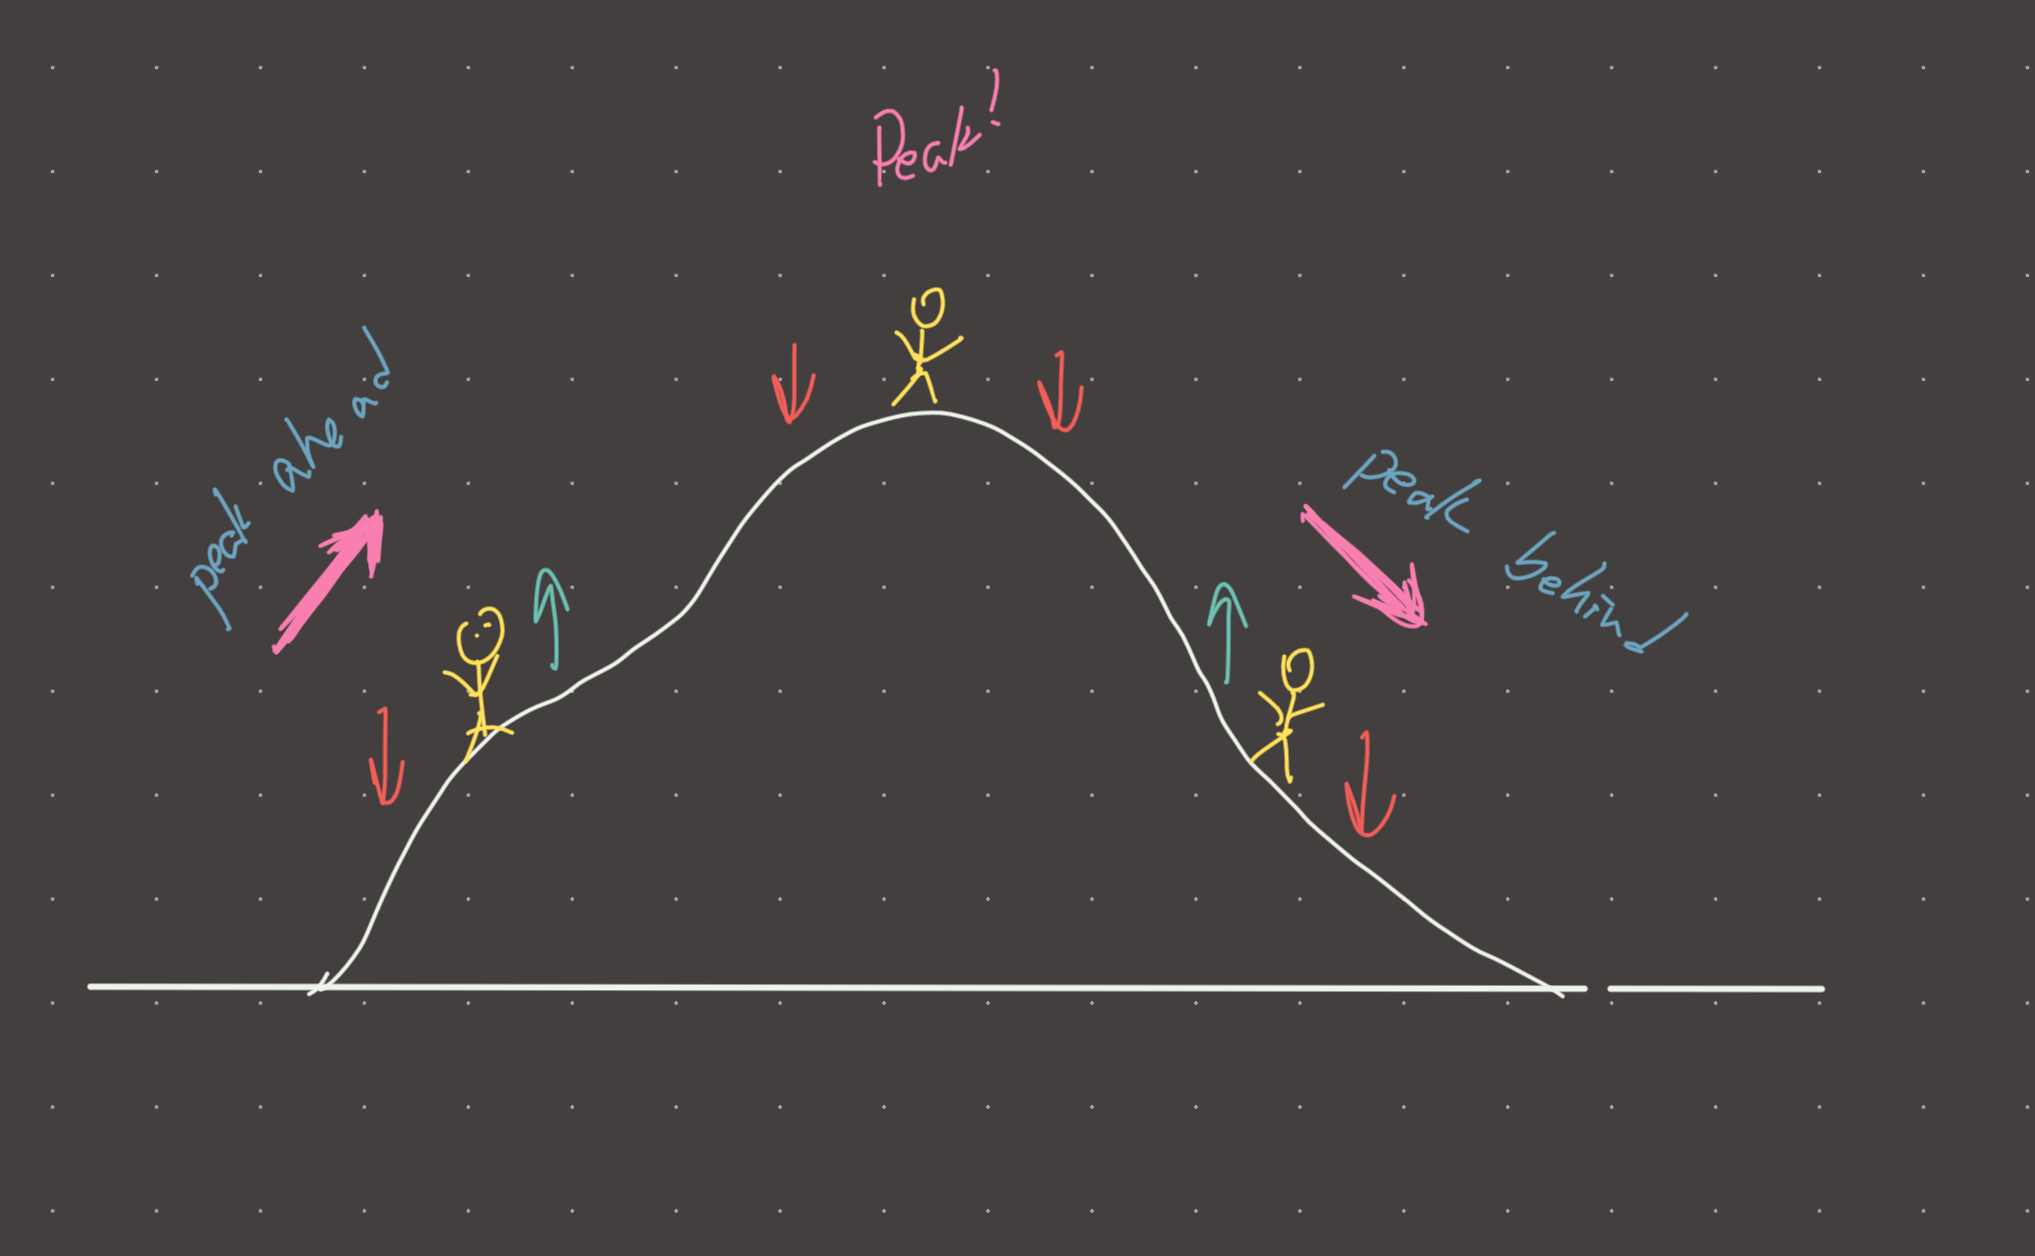 Peak!
peak ahead
peak behind